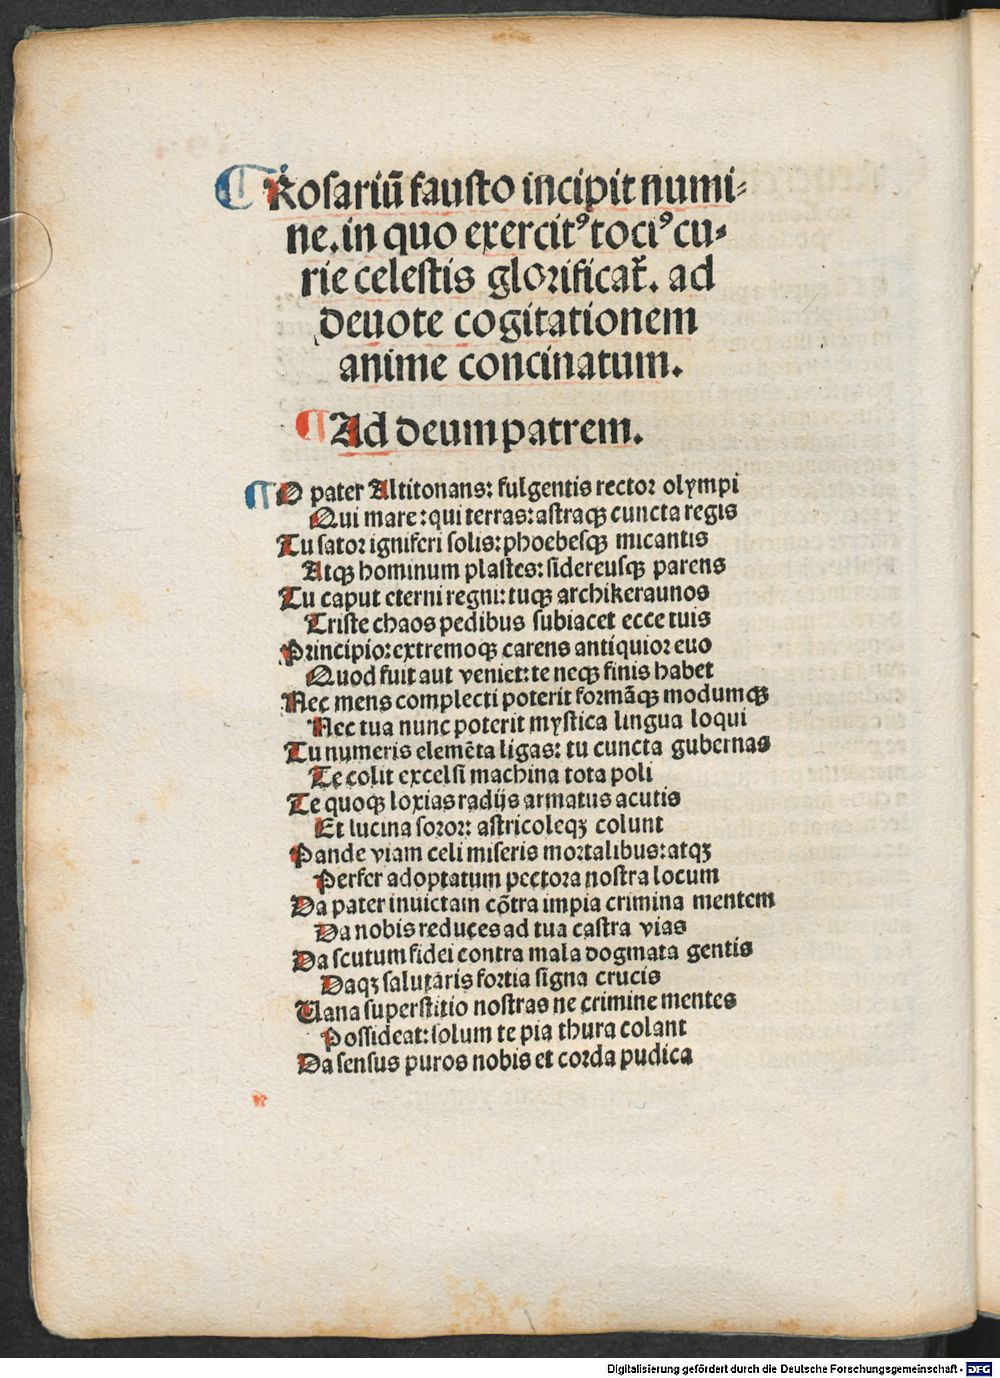 ¶ Rosariū fausto incipit numi⸗
ne. in quo exercitꝰ tociꝰ cu⸗
rie celestis glorificat᷑. ad
deuote cogitationem
anime concinatum.
¶ Ad deum patrem.
¶ O pater Altitonans: fulgentis rector olympi
Qui mare: qui terras: astraqꝫ cuncta regis
Tu sator igniferi solis: phoebesqꝫ micantis
Atqꝫ hominum plastes: sidereusqꝫ parens
Tu caput eterni regni: tuqꝫ archikeraunos
Triste chaos pedibus subiacet ecce tuis
Principio: extremoqꝫ carens antiquior euo
Quod fuit aut veniet: te neqꝫ finis habet
Nec mens complecti poterit formāqꝫ modumqꝫ
Nec tua nunc poterit mystica lingua loqui
Tu numeris elemēta ligas: tu cuncta gubernas
Te colit excelsi machina tota poli
Te quoqꝫ loxias radijs armatus acutis
Et lucina soror: astricoleqꝫ colunt
Pande viam celi miseris mortalibus: atqꝫ
Perfer adoptatum pectora nostra locum
Da pater inuictam cōtra impia crimina mentem
Da nobis reduces ad tua castra vias
Da scutum fidei contra mala dogmata gentis
Daqꝫ salutaris fortia signa crucis
Uana superstitio nostras ne crimine mentes
Possideat: solum te pia thura colant
Da sensus puros nobis et corda pudica
Digitalisierung gefördert durch die Deutsche Forschungsgemeinschaft - DFG